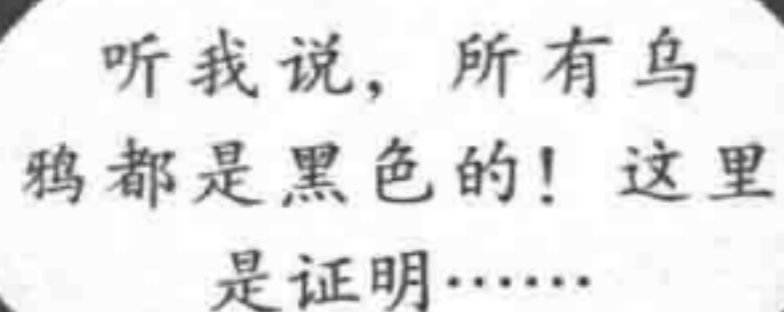 听我说，所有乌
鸦都是黑色的！这里
是证明……